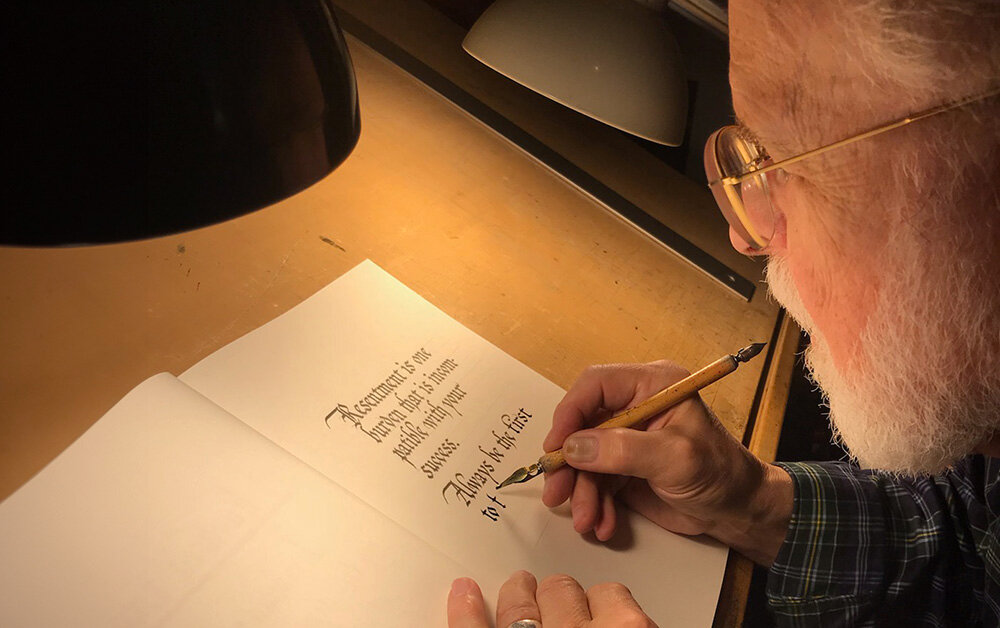 Resentment is one
burden that is incom-
patible with your
success.
Always be the first
to t